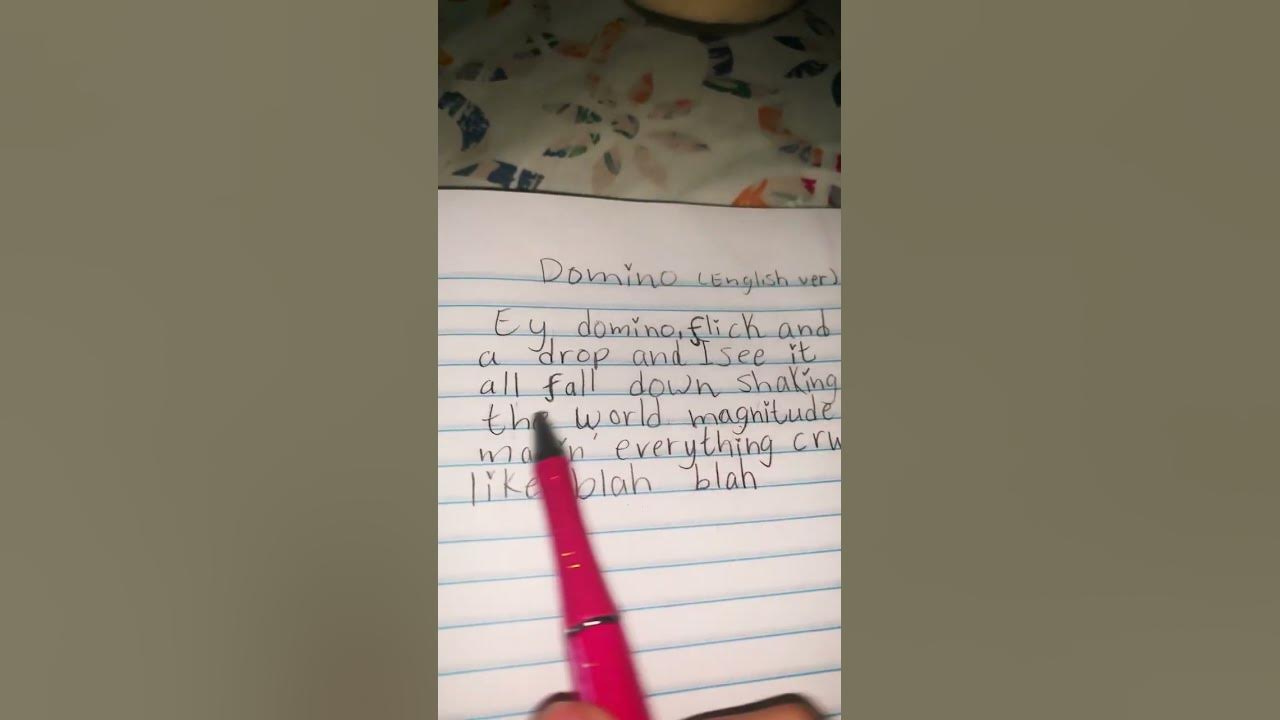 Domino (English ver)
Ey domino, flick and
a drop and I see it
all fall down shaking
the world magnitude
everything
like blah blah